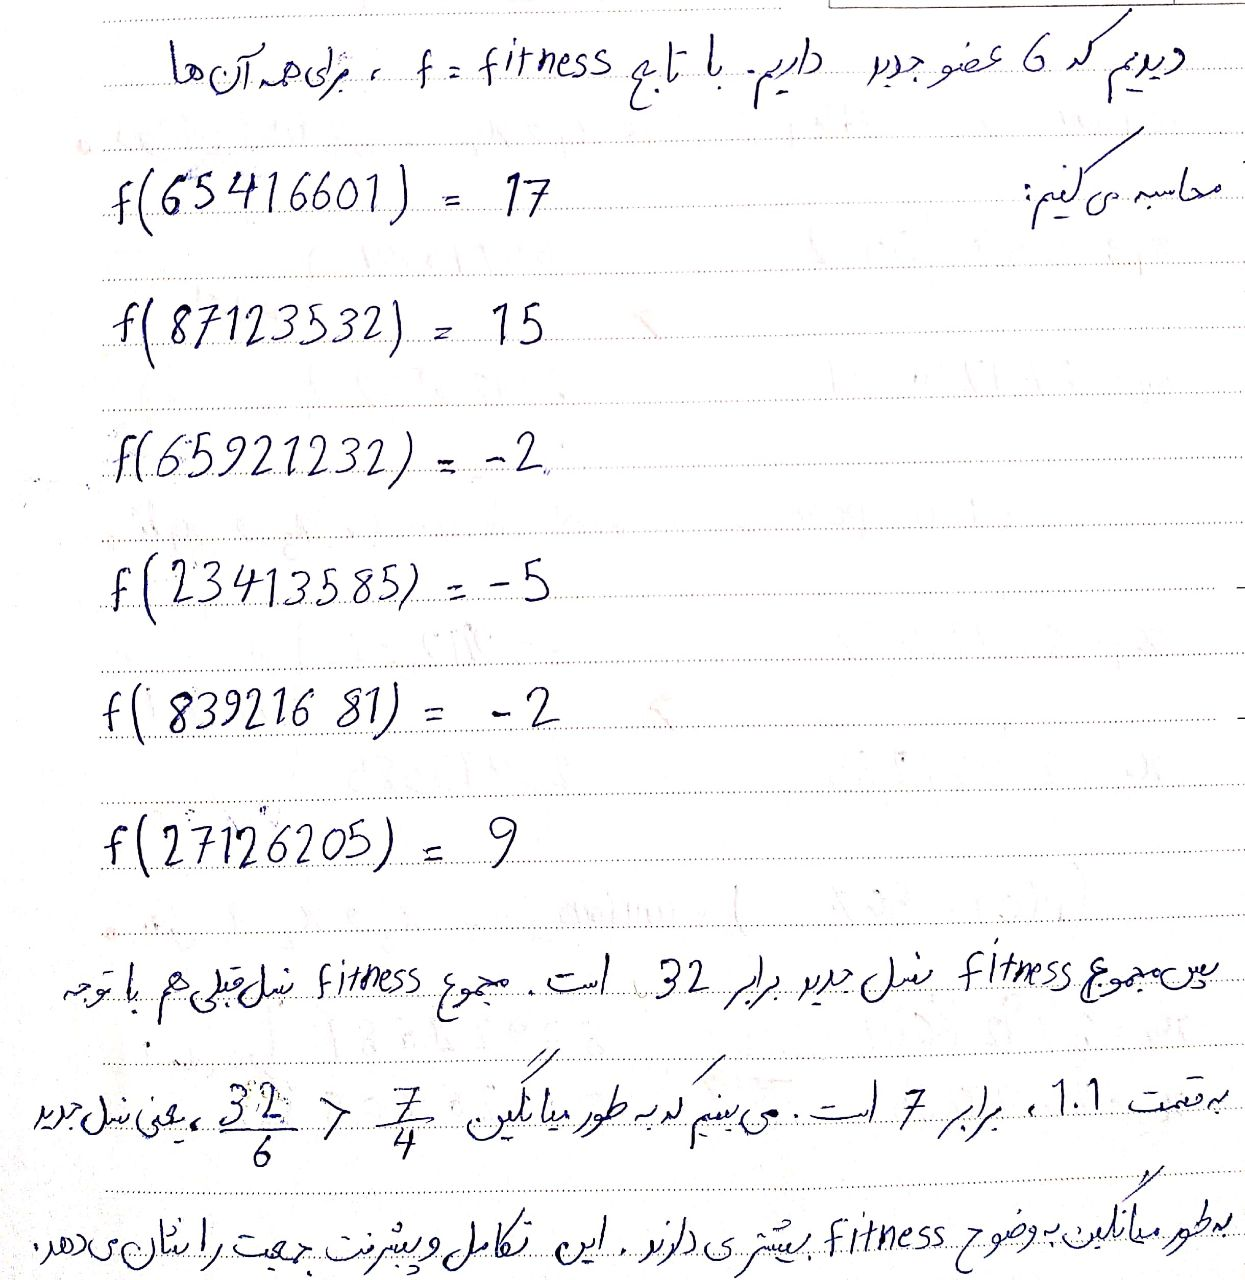 دیدیم که 6 عضو جدید داریم. با تابع f = fitness ، برای همه آن ها
محاسبه می کنیم:
f(65416601) = 17
f(87123532) = 15
f(65921232) = -2
f(23413585) = -5
f(83921681) = -2
f(27126205) = 9
پس مجموع fitness نسل جدید برابر 32 است. مجموع fitness نسل قبلی هم با توجه
به قسمت 1.1 ، برابر 7 است. می بینیم که به طور میانگین 32/6 > 7/4 ، یعنی نسل جدید
به طور میانگین به وضوح fitness بیشتری دارند. این تکامل و پیشرفت جمعیت را نشان می دهد.